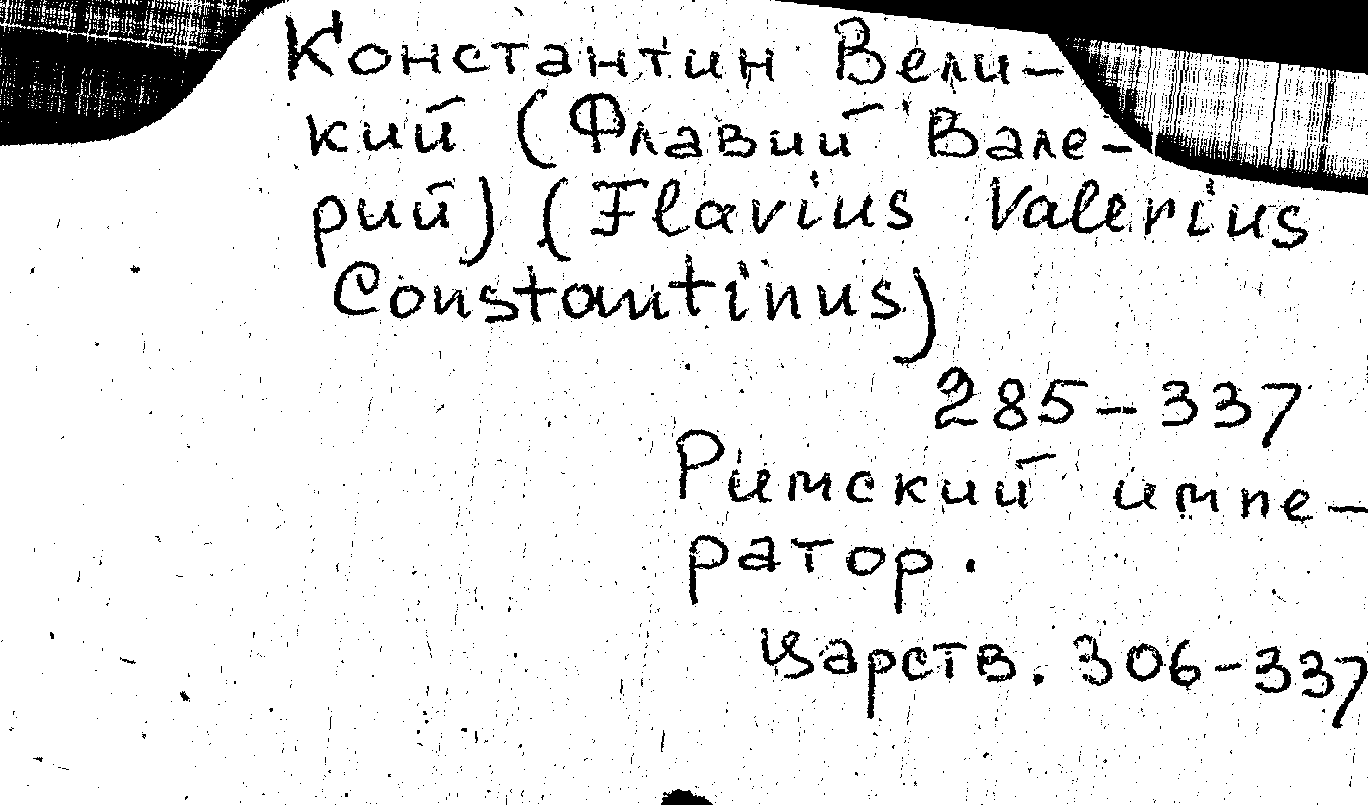 Константин Вели-
кий (Флавий Вале-
рий) (Flavius Valerius
Constantinus)
285-337
Римский импе-
ратор.
Царств. 306-337